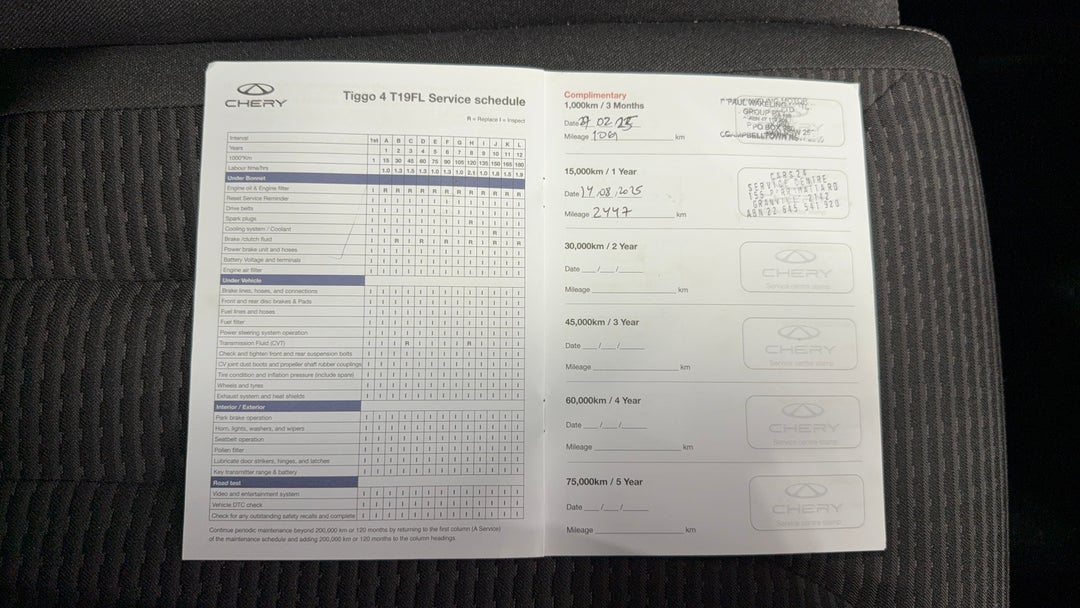 CHERY
Tiggo 4 T19FL Service schedule
R = Replace I = Inspect
Interval 1st A B C D E F G H I J K L
Years 1 2 3 4 5 6 7 8 9 10 11 12
1000*Km 1 15 30 45 60 75 90 105 120 135 150 165 180
Labour time/hrs 1.0 1.3 1.5 1.3 1.0 1.3 1.0 2.1 1.0 1.8 1.5 1.9
Under Bonnet
Engine oil & Engine filter I R R R R R R R R R R R R
Reset Service Reminder I I I I I I I I I I I I I
Drive belts I I I I I I I I I I I I I
Spark plugs I I I I I I I I R I I I I
Cooling system / Coolant I I I I I I I I I I R I I
Brake /clutch fluid I I R I R I R I R I R I R
Power brake unit and hoses I I I I I I I I I I I I I
Battery Voltage and terminals I I I I I I I I I I I I I
Engine air filter I I I I I I I I I I I I I
Under Vehicle
Brake lines, hoses, and connections I I I I I I I I I I I I I
Front and rear disc brakes & Pads I I I I I I I I I I I I I
Fuel lines and hoses I I I I I I I I I I I I I
Fuel filter I I I I I I I I I I I I I
Power steering system operation I I I I I I I I I I I I I
Transmission Fluid (CVT) I I I R I I I I R I I I I
Check and tighten front and rear suspension bolts I I I I I I I I I I I I I
CV joint dust boots and propeller shaft rubber couplings I I I I I I I I I I I I I
Tire condition and inflation pressure (include spare) I I I I I I I I I I I I I
Wheels and tyres I I I I I I I I I I I I I
Exhaust system and heat shields I I I I I I I I I I I I I
Interior / Exterior
Park brake operation I I I I I I I I I I I I I
Horn, lights, washers, and wipers I I I I I I I I I I I I I
Seatbelt operation I I I I I I I I I I I I I
Pollen filter I I I I I I I I I I I I I
Lubricate door strikers, hinges, and latches I I I I I I I I I I I I I
Key transmitter range & battery I I I I I I I I I I I I I
Road test
Video and entertainment system I I I I I I I I I I I I I
Vehicle DTC check I I I I I I I I I I I I I
Check for any outstanding safety recalls and complete I I I I I I I I I I I I I
Continue periodic maintenance beyond 200,000 km or 120 months by returning to the first column (A Service)
of the maintenance schedule and adding 200,000 km or 120 months to the column headings.
Complimentary
1,000km / 3 Months
Date 27 02 25
Mileage 1069 km
PAUL WAKELING MOTOR
GROUP
PO BOX
CAMPBELLTOWN
15,000km / 1 Year
Date 14/08/2025
Mileage 2447 km
CARS24
SERVICE CENTRE
155 PARRAMATTA RD
GRANVILLE 2142
ABN 22 645 541 920
30,000km / 2 Year
Date __/__/____
Mileage ________ km
CHERY
Service centre stamp
45,000km / 3 Year
Date __/__/____
Mileage ________ km
CHERY
Service centre stamp
60,000km / 4 Year
Date __/__/____
Mileage ________ km
CHERY
Service centre stamp
75,000km / 5 Year
Date __/__/____
Mileage ________ km
CHERY
Service centre stamp